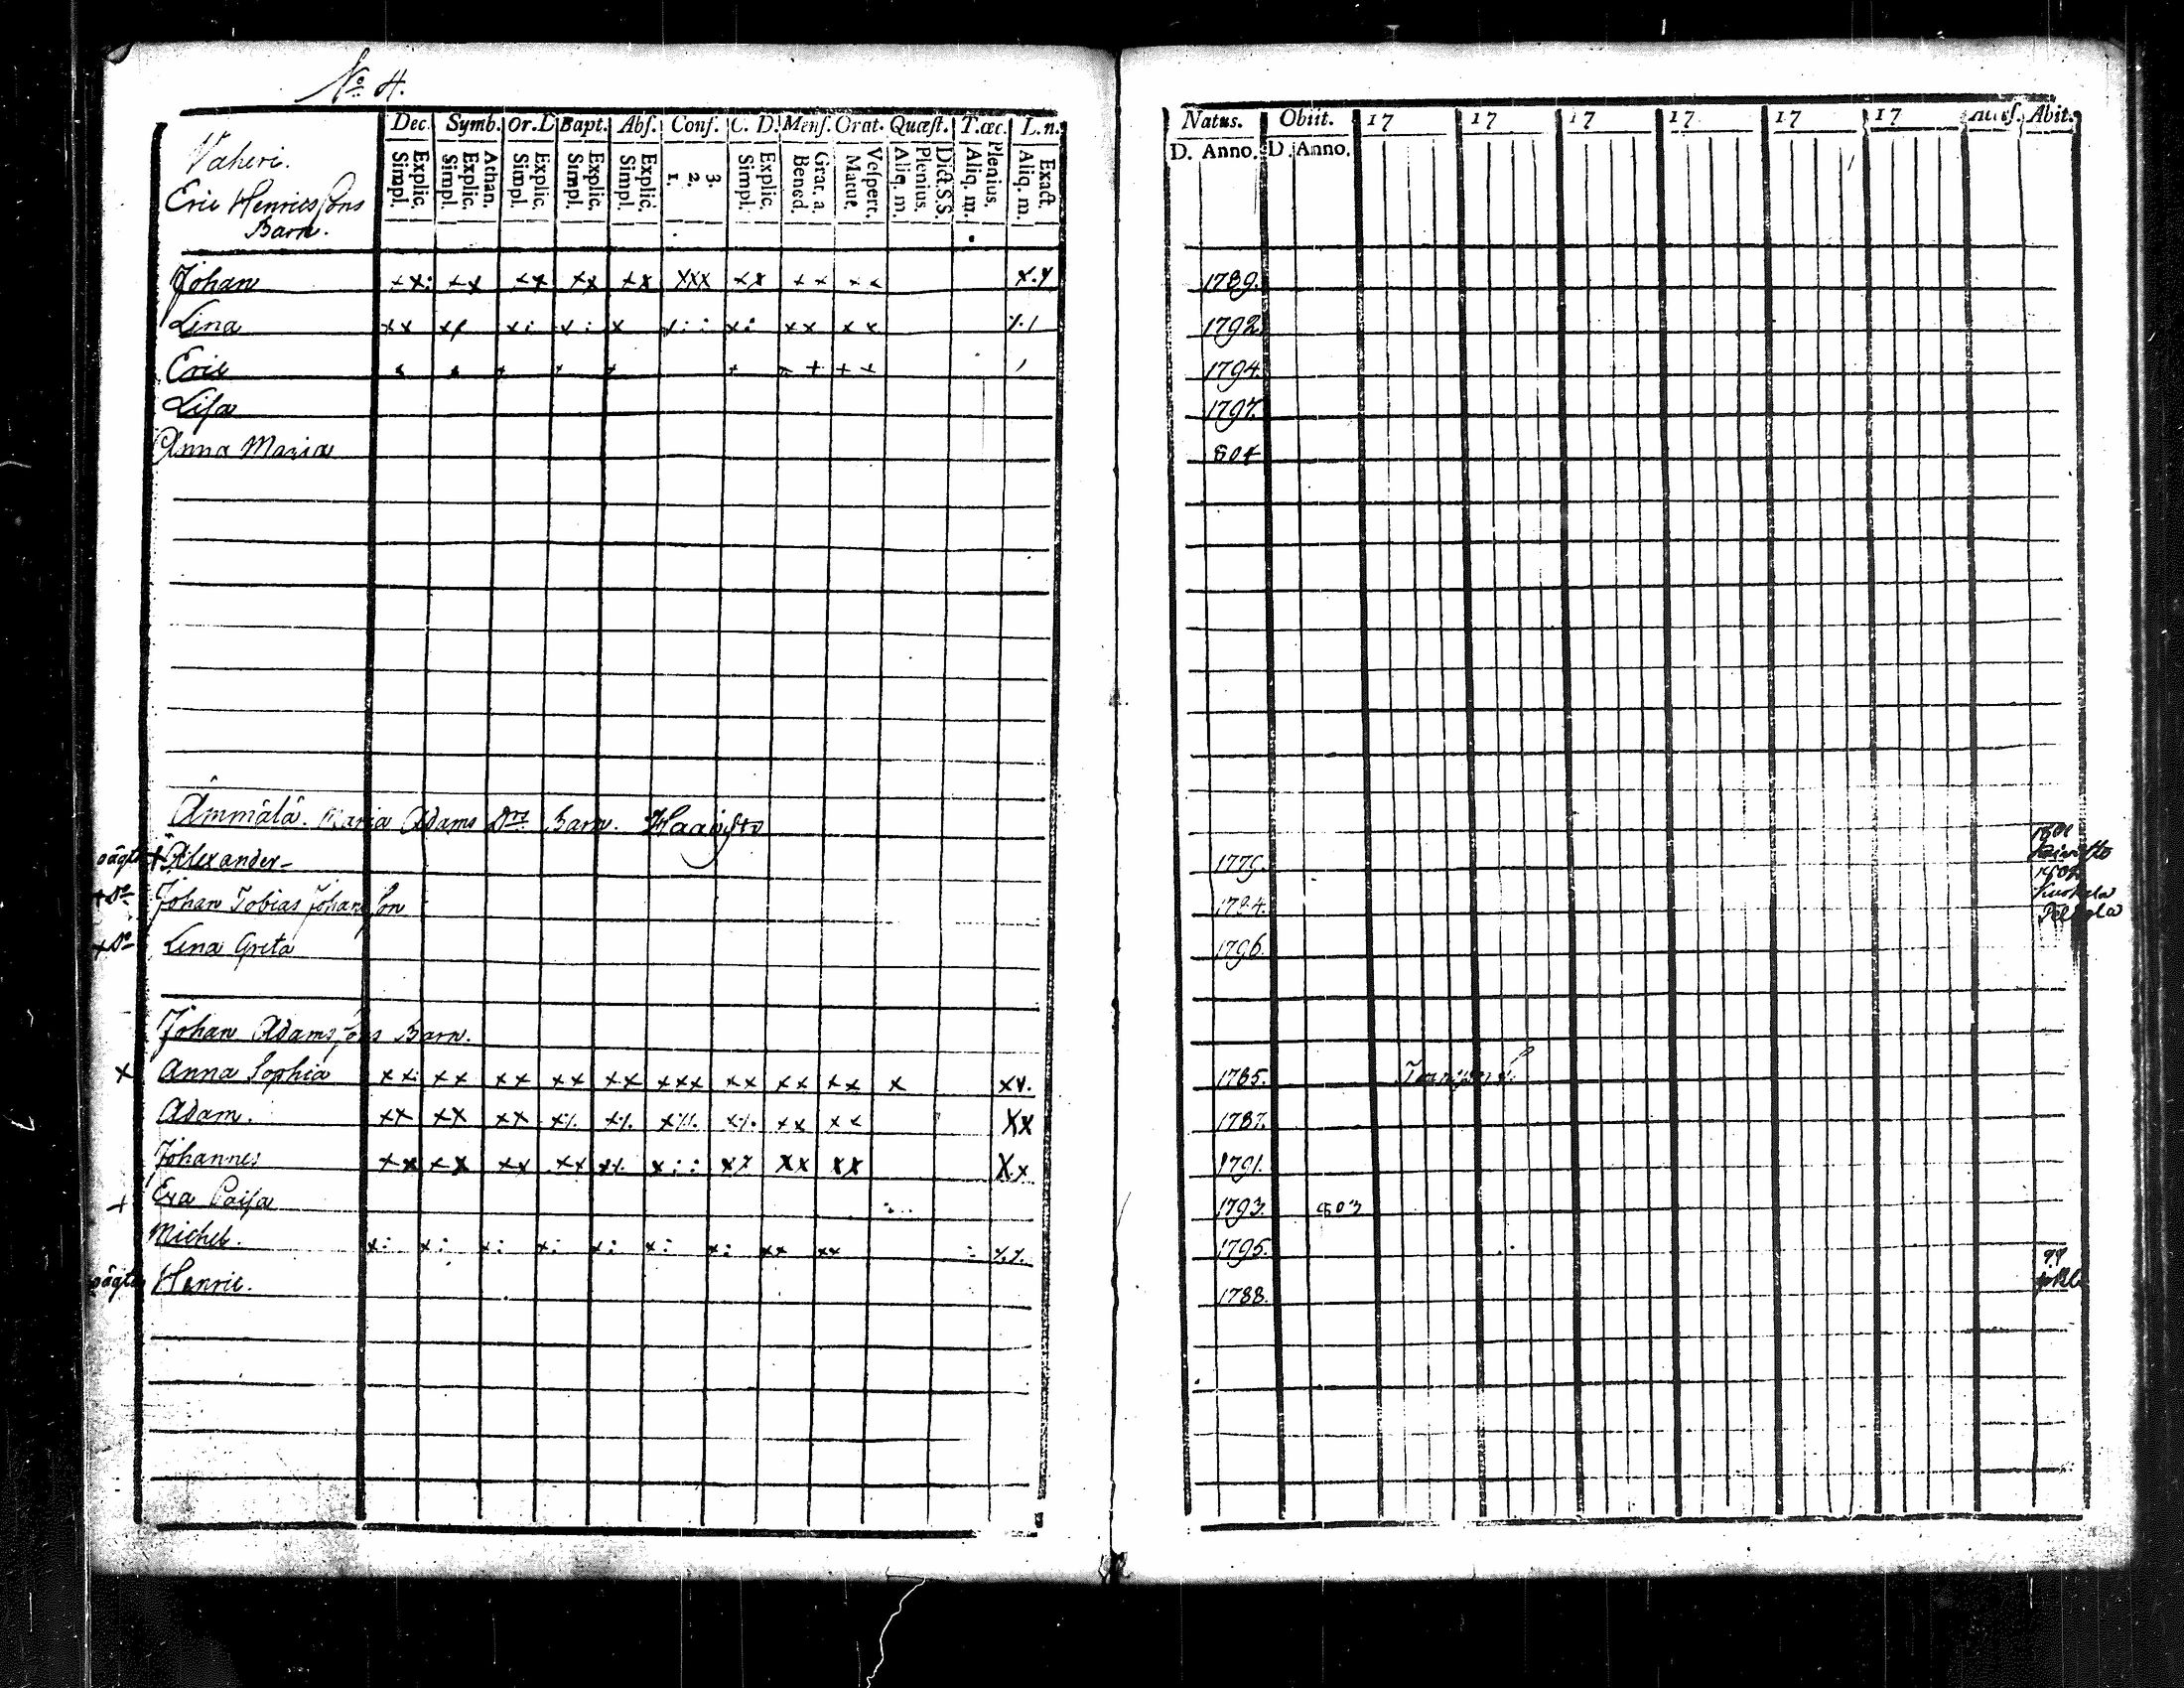 No 4.
Dec. Symb. Or. D Bapt. Abſ. Conf. C. D. Menſ. Orat. Quæſt. T. œc. L. n.
Explic. Simpl. Athan. Explic. Simpl. Explic. Simpl. Explic. Simpl. Explic. Simpl. 3. 2. 1. Explic. Simpl. Grat. a. Bened. Veſpert. Matut. Dict. S.S. Plenius. Aliq. m. Plenius. Aliq. m. Exact. Aliq. m.
Natus. Obiit. 17 17 17 17 17 17 Abit.
D. Anno. D. Anno.
Vaheri.
Eric Henricsſons
Barn.
Johan 1789.
Lina 1792.
Eric 1794.
Liſa 1797.
Anna Maria 804
Ämmälä. Maria Adams Drs Barn. Haaviſto
Alexander 1779.
Johan Tobias Johansſon 1784.
Lena Greta 1796.
Johan Adamsſons Barn.
Anna Sophia 1785.
Adam. 1787.
Johannes 1791.
Eva Caiſa 1793. 803
Michel. 1795.
Henric. 1788.